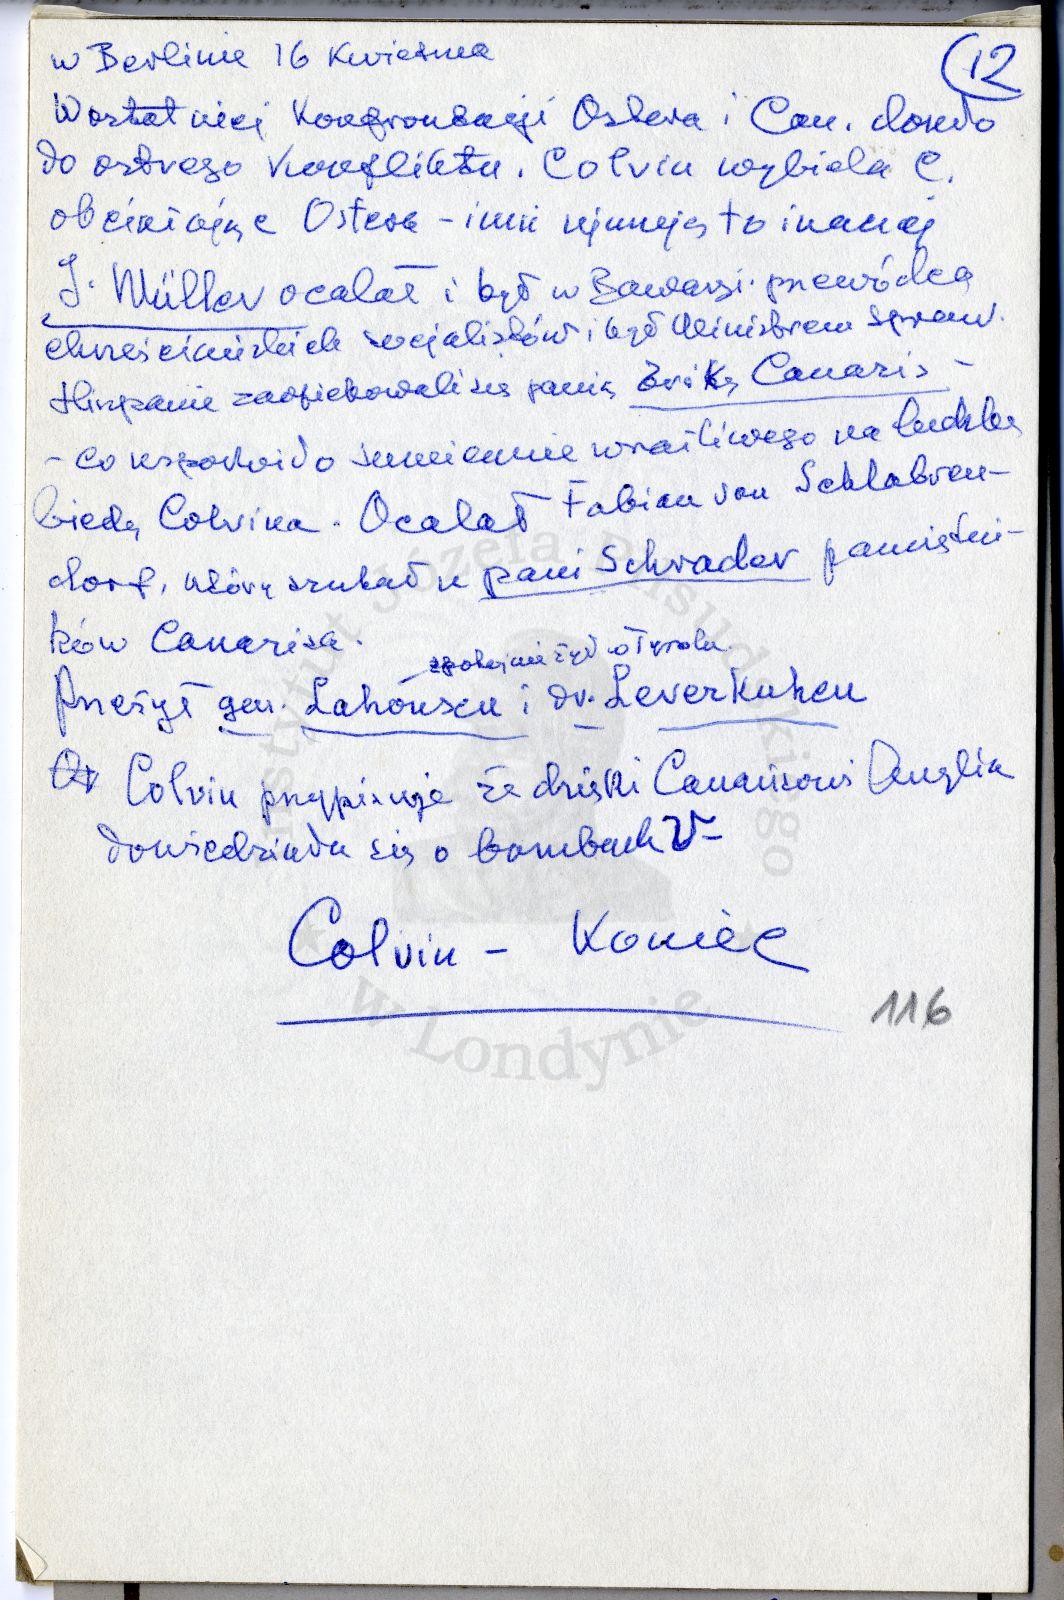 12
w Berlinie 16 kwietnia
W ostatniej konfrontacji Ostera i Can. doszło
do ostrego konfliktu. Colvin wybiela C.
obciążając Ostera - inni ujmują to inaczej
J. Müller ocalał i był w Bawarji przewódcą
chrześcijańskich socjalistów i był Ministrem Spraw.
Hiszpanie zaopiekowali się panią Eriką Canaris -
- co uspokoiło sumienie wrażliwego na ludzką
biedę Colvina. Ocalał Fabian von Schlabren-
dorf, który szukał u pani Schrader pamiętni-
ków Canarisa.
spokojnie żył w Tyrolu.
Przeżył gen. Lahousen i dr. Leverkuhen
Colvin przypisuje że dzięki Canarisowi Anglia
dowiedziała się o bombach V-
Colvin - Koniec
116
Instytut Józefa Piłsudskiego
w Londynie